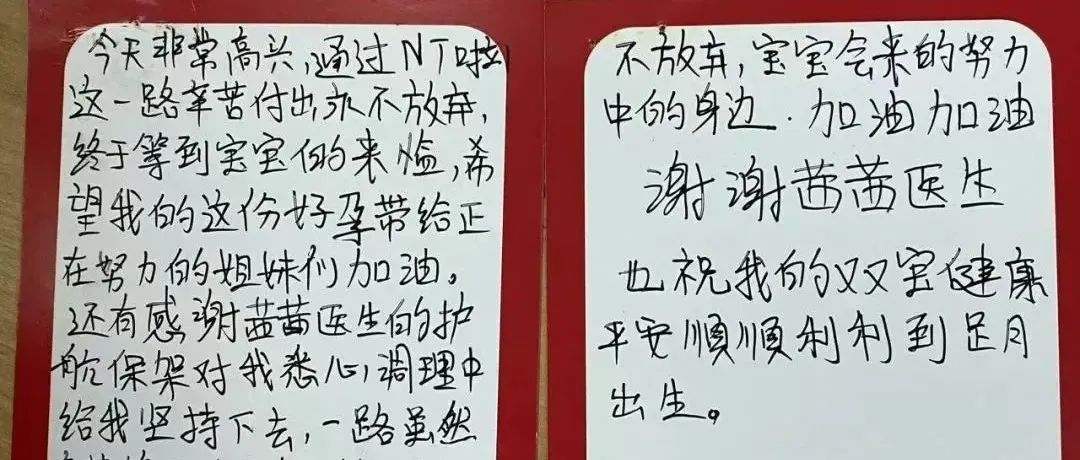 今天非常高兴,通过NT啦
这一路辛苦付出永不放弃,
终于等到宝宝们的来临,希
望我的这份好孕带给正
在努力的姐妹们加油。
还有感谢茜茜医生的护
航保架对我悉心,调理中
给我坚持下去,一路虽然
不放弃,宝宝会来的努力
中的身边.加油加油
谢谢茜茜医生
也祝我的双宝健康
平安顺顺利利到足月
出生。